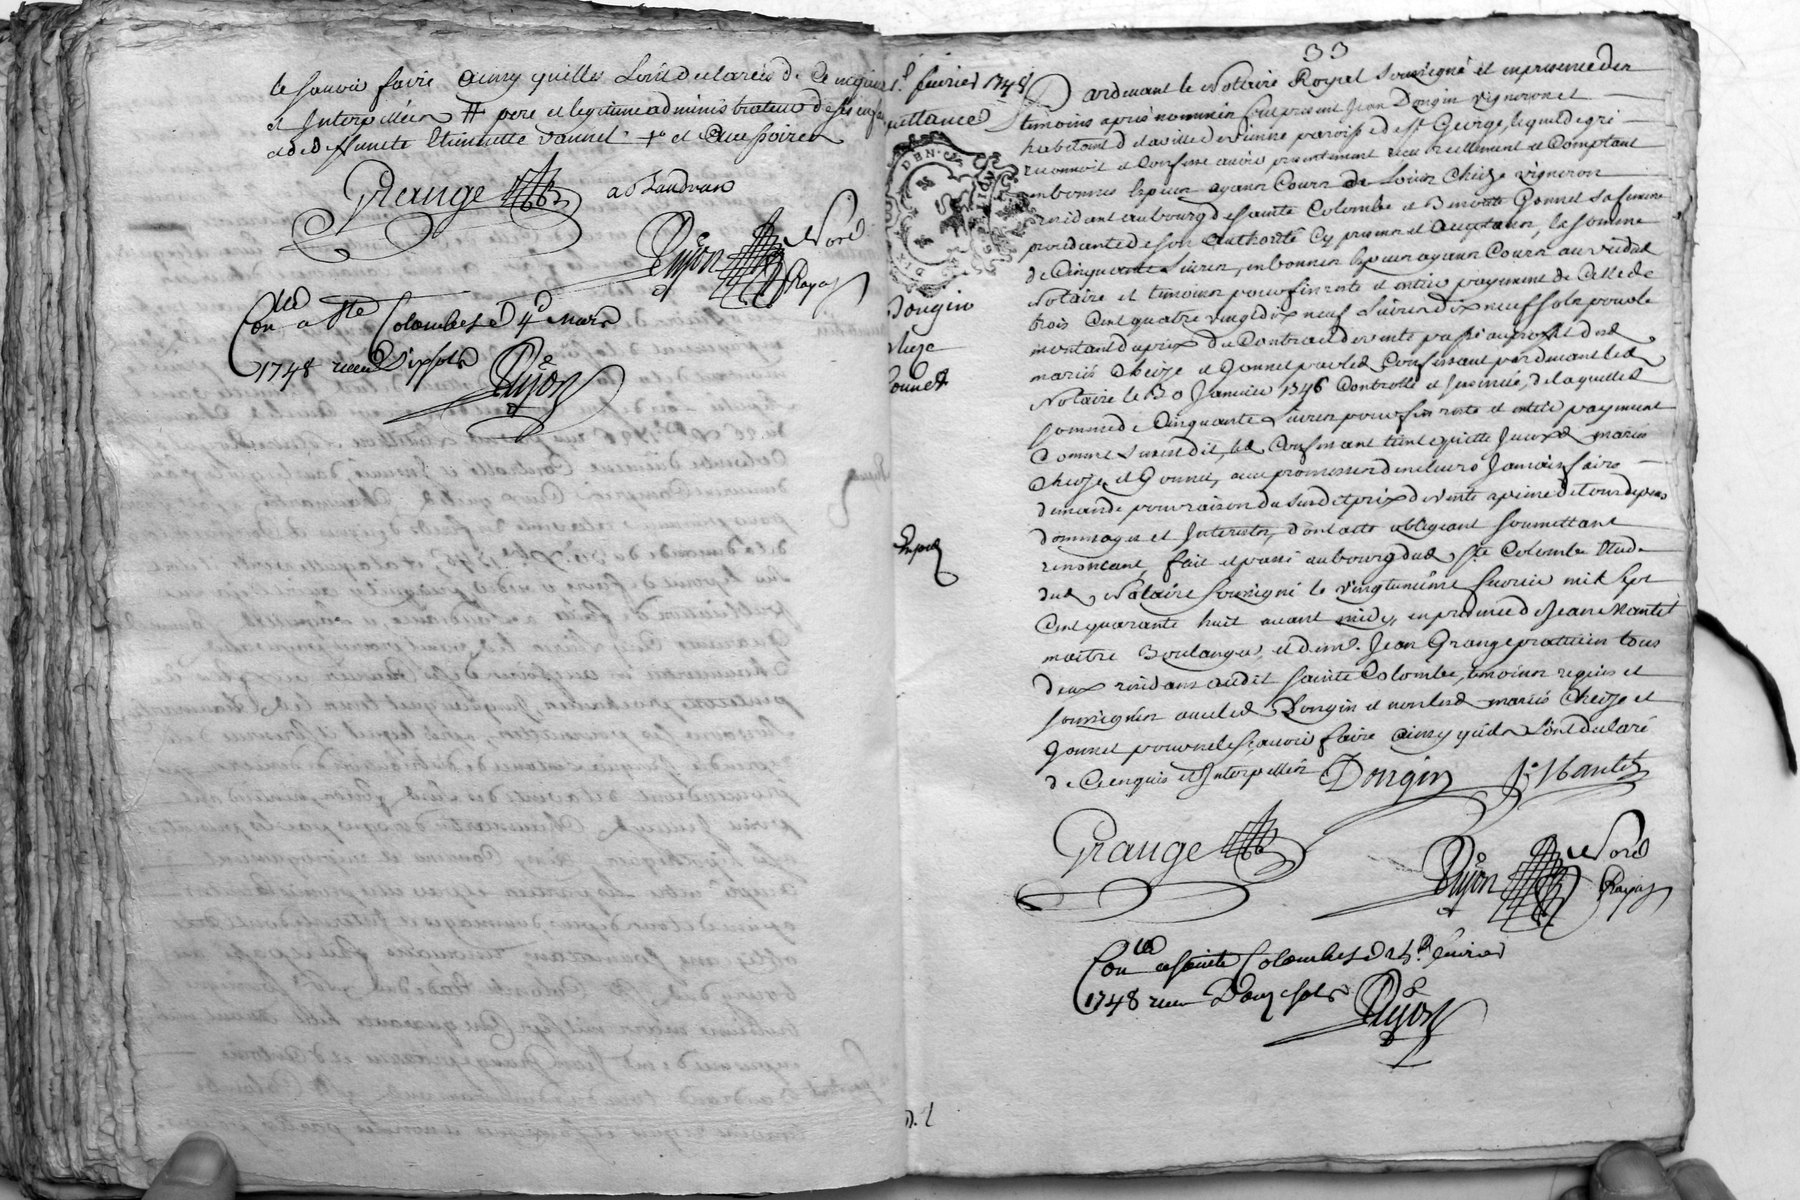 le sçavoir faire ainsy quilles ont declarées de ce enquises
et Interpellées # pere et legitime administrateur de ses enfans
et de deffuncte Etiennette Vannel + et accessoires
Grange a Baudran
Dujon No. re
Royal
Con. lé a Ste Colombe le 4e mars
1748 reçu Dix sols
Dujon
33
1. février 1748
quittance
Dongin
Cheze
Gonnet
Expedié
Pardevant le Notaire Royal soussigné et en presence des
temoins après nommés fut present Jean Dongin vigneron et
habitant de la ville de vienne paroisse de St George, lequel de gré
reconnoit et Confesse avoir presentement reçu reellement et Comptant
en bonnes Especes ayans Cours de Cheze vigneron
residant au bourg de sainte Colombe et Benoite Gonnet sa femme
procedante de son authorité Cy presents et acceptans, la somme
de Cinquante Livres, en bonnes Especes ayans Cours au vu dud
Notaire et temoins pour fin reste et entier payement de Celle de
trois Cent quatre vingt dix neuf Livres dix neuf sols pour le
montant du prix du Contract de vente passé au profit desd
mariés Cheze et Gonnet par led Confessant pardevant led
Notaire le 30 Janvier 1746 Controllé et Insinué, de laquelle
somme de Cinquante Livres pour fin reste et entier payement
Comme susdit, led Confessant tient quitte Iceux mariés
Cheze et Gonnet, avec promesse de ne leur Jamais faire
demande pour raison du susdit prix de vente a peine de tous depens
dommages et Interests, dont acte obligeant soumettant
renonceant, fait et passé au bourg dud Ste Colombe Etude
dud Notaire soussigné le vingtunième fevrier mil sept
Cent quarante huit avant midy, en presence de Jean Nantet
maitre Boulanger, et de me. Jean Grange praticien tous
deux residans audit sainte Colombe, temoins requis et
soussignés avec led Dongin et non lesd mariés Cheze et
Gonnet pour ne le sçavoir faire ainsy qu'ils ont declaré
de Ce enquis et Interpellés Dongin J. Nantet
Grange
Dujon No. re
Royal
Con. lé a sainte Colombe le février
1748 reçu Douze sols
Dujon